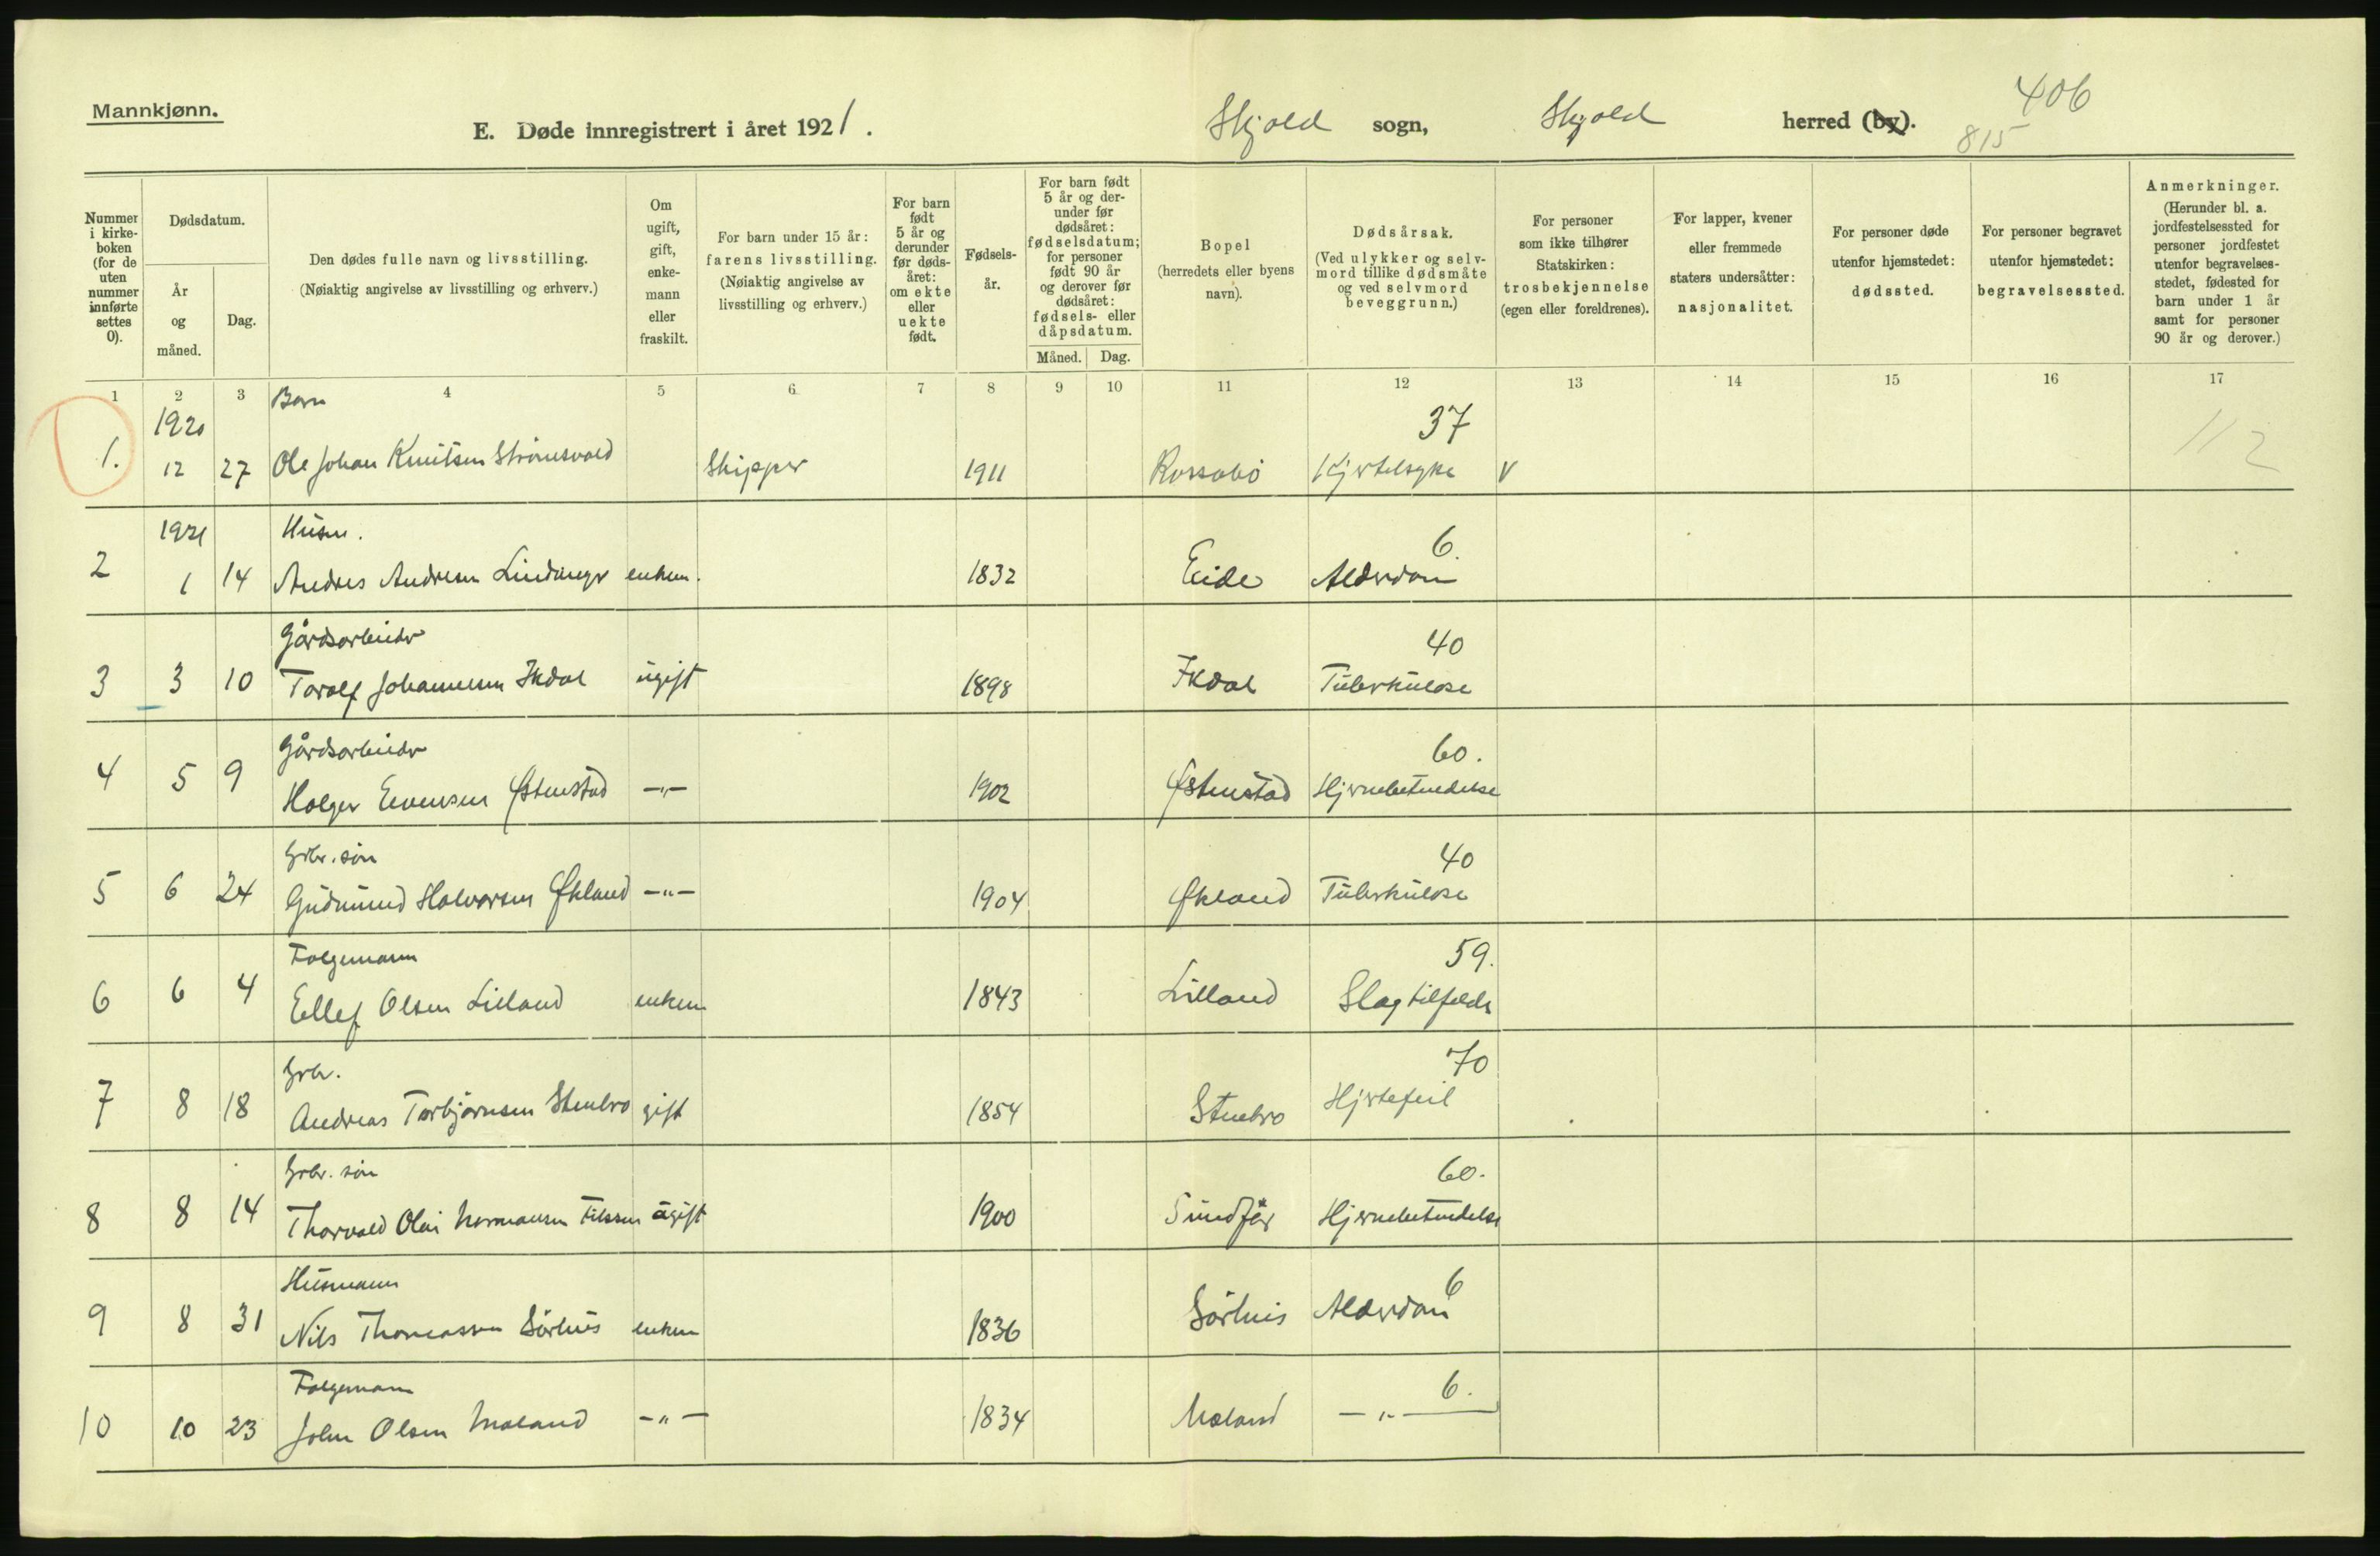 Mannkjønn.
E. Døde innregistrert i året 1921.
Skjold sogn, Skjold herred (by).
406
815
Nummer i kirke-boken (for de uten nummer innførte settes 0).
Dødsdatum.
År og måned.
Dag.
Den dødes fulle navn og livsstilling.
(Nøiaktig angivelse av livsstilling og erhverv.)
Om ugift, gift, enke-mann eller fraskilt.
For barn under 15 år: farens livsstilling.
(Nøiaktig angivelse av livsstilling og erhverv.)
For barn født 5 år og derunder før døds-året: om ekte eller uekte født.
Fødsels-år.
For barn født 5 år og der-under før dødsåret: fødselsdatum; for personer født 90 år og derover før dødsåret: fødsels- eller dåpsdatum.
Måned. Dag.
Bopel (herredets eller byens navn).
Dødsårsak.
(Ved ulykker og selv-mord tillike dødsmåte og ved selvmord beveggrunn.)
For personer som ikke tilhører Statskirken: trosbekjennelse (egen eller foreldrenes).
For lapper, kvener eller fremmede staters undersåtter: nasjonalitet.
For personer døde utenfor hjemstedet: dødssted.
For personer begravet utenfor hjemstedet: begravelsessted.
Anmerkninger.
(Herunder bl. a. jordfestelsessted for personer jordfestet utenfor begravelses-stedet, fødested for barn under 1 år samt for personer 90 år og derover.)
1 2 3 4 5 6 7 8 9 10 11 12 13 14 15 16 17
1920 Barn 37
1. 12 27 Ole Johan Knutsen Strømsvold Skipper 1911 Rossabø Kjertelsyke V 112
1921 Husm. 6.
2 1 14 Andres Andresen enkem. 1832 Eide Alderdom
Gårdsarbeider 40
3 3 10 Torolf Johannesen Ikdal ugift 1898 Ikdal Tuberkulose
Gårdsarbeider 60.
4 5 9 Holger Evensen Østenstad —"— 1902 Østenstad Hjernebetendelse
Grbr. søn 40
5 6 24 Gudmund Halvorsen Økland —"— 1904 Økland Tuberkulose
Folgemann 59.
6 6 4 Ellef Olsen Lilland enkem 1843 Lilland Slagtilfelde
Grbr. 70
7 8 18 Andreas Torbjørnsen Stenbro gift 1854 Stenbro Hjertefeil
Grbr. søn 60.
8 8 14 Thorvald Olai Normansen ugift 1900 Sundfør Hjernebetendelse
Husmann 6
9 8 31 Nils Thomassen Sørhus enkem 1836 Sørhus Alderdom
Folgemann 6.
10 10 23 John Olsen Moland —"— 1834 Moland —"—